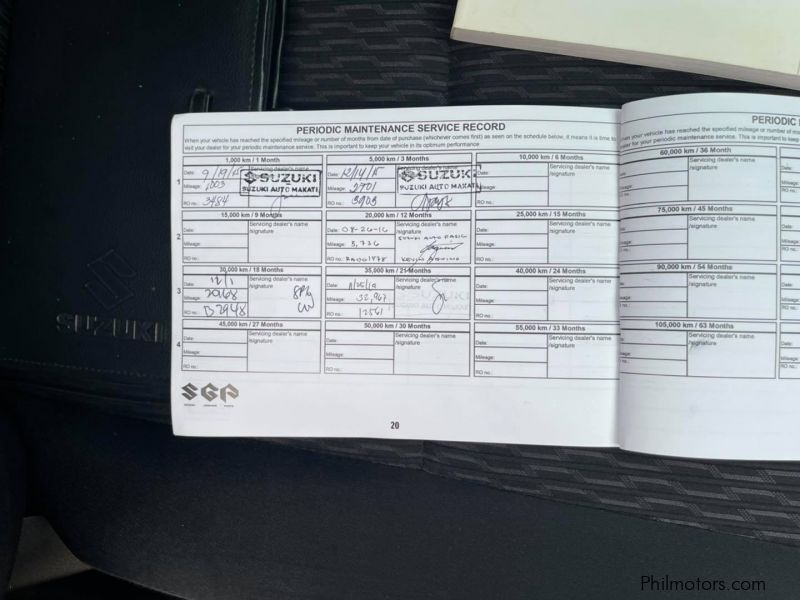 PERIODIC MAINTENANCE SERVICE RECORD
When your vehicle has reached the specified mileage or number of months from date of purchase (whichever comes first) as seen on the schedule below, it means it is time to
visit your dealer for your periodic maintenance service. This is important to keep your vehicle in its optimum performance
1,000 km / 1 Month
5,000 km / 3 Months
10,000 km / 6 Months
1
Date: 9/19/15
Mileage: 1003
RO no.: 3484
Servicing dealer's name
SUZUKI
SUZUKI AUTO MAKATI
Date: 12/14/15
Mileage: 2701
RO no.: 3903
Servicing dealer's name
SUZUKI
SUZUKI AUTO MAKATI
Date:
Mileage:
RO no.:
Servicing dealer's name
/signature
15,000 km / 9 Months
20,000 km / 12 Months
25,000 km / 15 Months
2
Date:
Mileage:
RO no.:
Servicing dealer's name
/signature
Date: 04-26-16
Mileage: 5,736
RO no.:
Servicing dealer's name
/signature
SUZUKI AUTO PASIG
Date:
Mileage:
RO no.:
Servicing dealer's name
/signature
30,000 km / 18 Months
35,000 km / 21 Months
40,000 km / 24 Months
3
12/1
20168
Servicing dealer's name
/signature
Date:
Mileage: 32,967
RO no.: 12561
Servicing dealer's name
/signature
Date:
Mileage:
RO no.:
Servicing dealer's name
/signature
45,000 km / 27 Months
50,000 km / 30 Months
55,000 km / 33 Months
4
Date:
Mileage:
RO no.:
Servicing dealer's name
/signature
Date:
Mileage:
RO no.:
Servicing dealer's name
/signature
Date:
Mileage:
RO no.:
Servicing dealer's name
/signature
SGP
20
PERIODIC
your vehicle has reached the specified mileage or number of
dealer for your periodic maintenance service. This is important to keep
60,000 km / 36 Month
Servicing dealer's name
/signature
75,000 km / 45 Months
Servicing dealer's name
/signature
90,000 km / 54 Months
Servicing dealer's name
/signature
105,000 km / 63 Months
Servicing dealer's name
/signature
SUZUKI
Philmotors.com